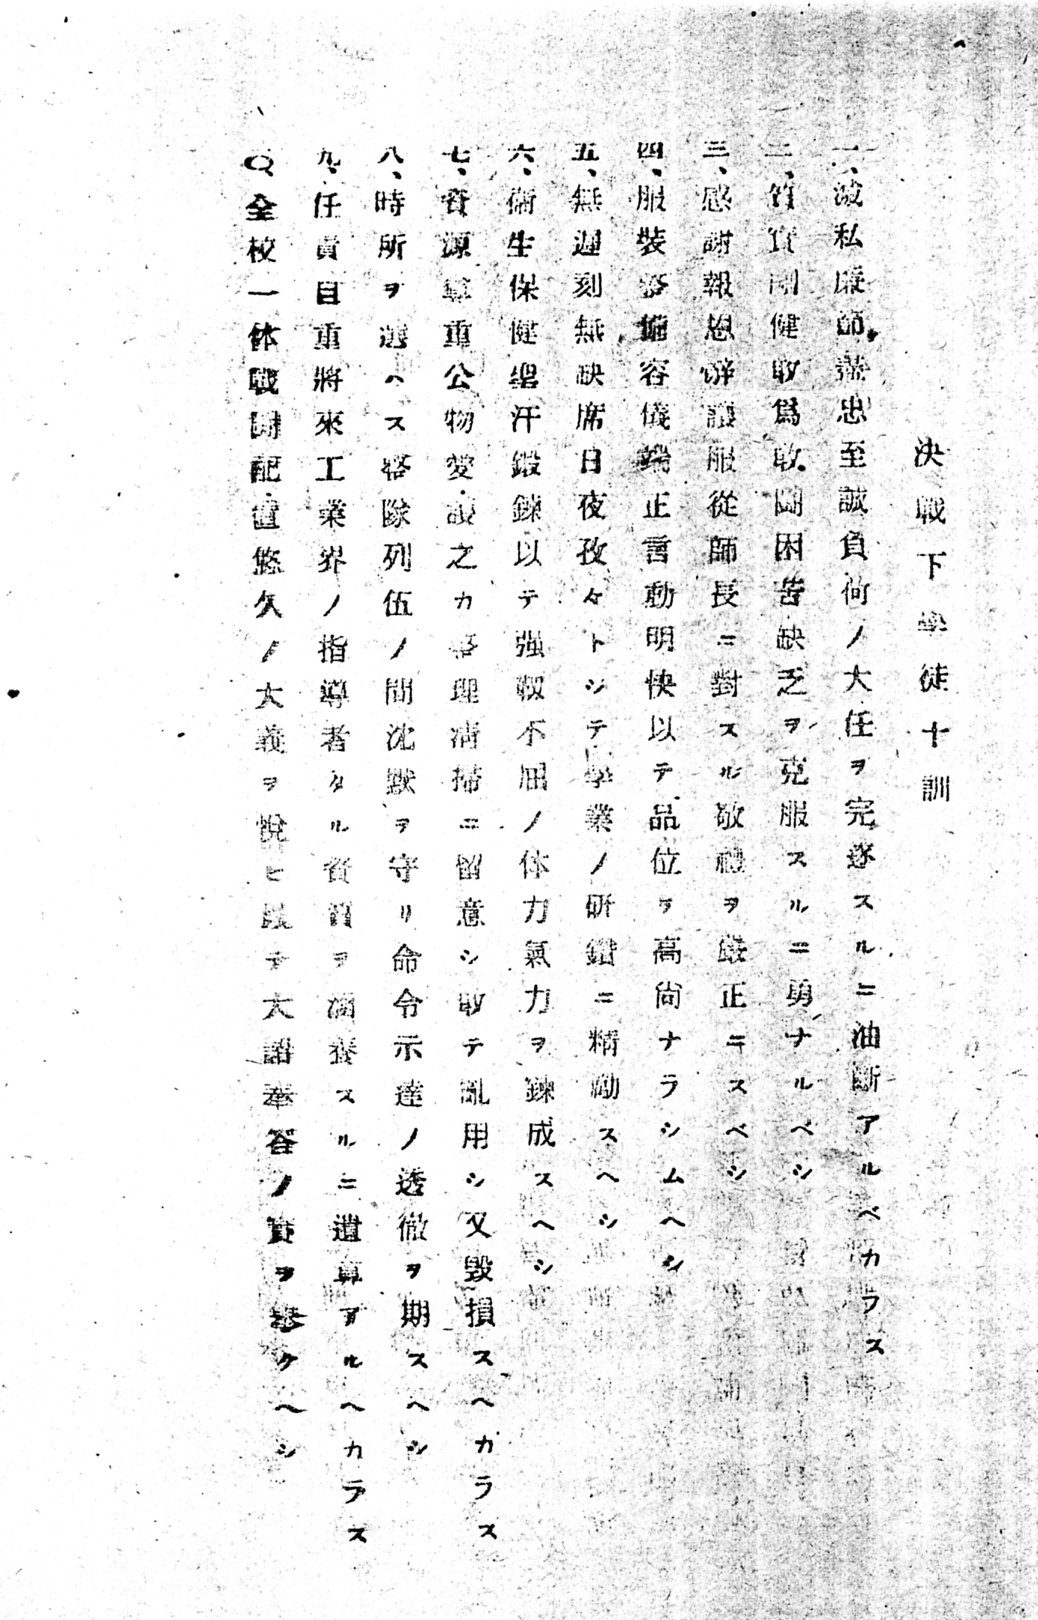 決戰下學徒十訓
一、滅私廉節盡忠至誠負荷ノ大任ヲ完遂スルニ油斷アルベカラス
二、質實剛健敢爲敢鬪困苦缺乏ヲ克服スルニ勇ナルベシ
三、感謝報恩辭讓服從師長ニ對スル敬禮ヲ嚴正ニスベシ
四、服裝容儀端正言動明快以テ品位ヲ高尙ナラシムヘシ
五、無遲刻無缺席日夜孜々トシテ學業ノ研鑽ニ精勵スヘシ
六、衞生保健汗鍛鍊以テ强靱不屈ノ体力氣力ヲ鍊成スヘシ
七、資源尊重公物愛護之カ理淸掃ニ留意シ敢テ亂用シ又毀損スヘカラス
八、時所ヲ選ハス各隊列伍ノ間沈默ヲ守リ命令示達ノ透徹ヲ期スヘシ
九、任責自重將來工業界ノ指導者タル資質ヲ涵養スルニ遺算アルヘカラス
〇、全校一体戰鬪配置悠久ノ大義ヲ悅ヒテ大詔奉答ノ實ヲ擧クヘシ